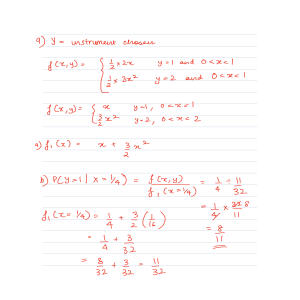 9) Y = instrument chosen
f(x,y) = { 1/2 × 2x y=1 and 0<x<1
1/2 × 3x² y=2 and 0<x<1
f(x,y) = { x y=1, 0<x<1
3/2 x² y=2, 0<x<2
a) f₁(x) = x + 3/2 x²
b) P(Y=1 | X=1/4) = f(x,y) / f₁(x=1/4) = 1/4 ÷ 11/32
= 1/4 × 32 8/11
= 8/11
f₁(x=1/4) = 1/4 + 3/2 (1/16)
= 1/4 + 3/32
= 8/32 + 3/32 = 11/32